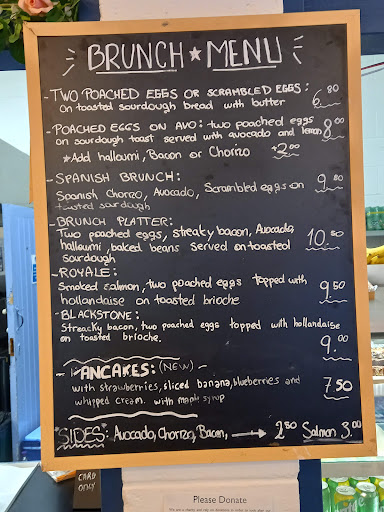 BRUNCH ★ MENU
- TWO POACHED EGGS OR SCRAMBLED EGGS:
on toasted sourdough bread with butter 6.80
- POACHED EGGS ON AVO: two poached eggs
on sourdough toast served with avocado and lemon 8.00
*Add halloumi, Bacon or Chorizo +2.00
- SPANISH BRUNCH:
Spanish Chorizo, Avocado, Scrambled eggs on 9.80
toasted sourdough
- BRUNCH PLATTER:
Two poached eggs, streaky bacon, Avocado,
halloumi, baked beans served on toasted 10.50
sourdough
- ROYALE:
Smoked salmon, two poached eggs topped with
hollandaise on toasted brioche 9.50
- BLACKSTONE:
Streacky bacon, two poached eggs topped with hollandaise
on toasted brioche. 9.00
- PANCAKES: (NEW) -
with strawberries, sliced banana, blueberries and
whipped cream. with maple syrup 7.50
*SIDES: Avocado, Chorizo, Bacon, → 2.80 Salmon 3.00
CARD
ONLY
Please Donate